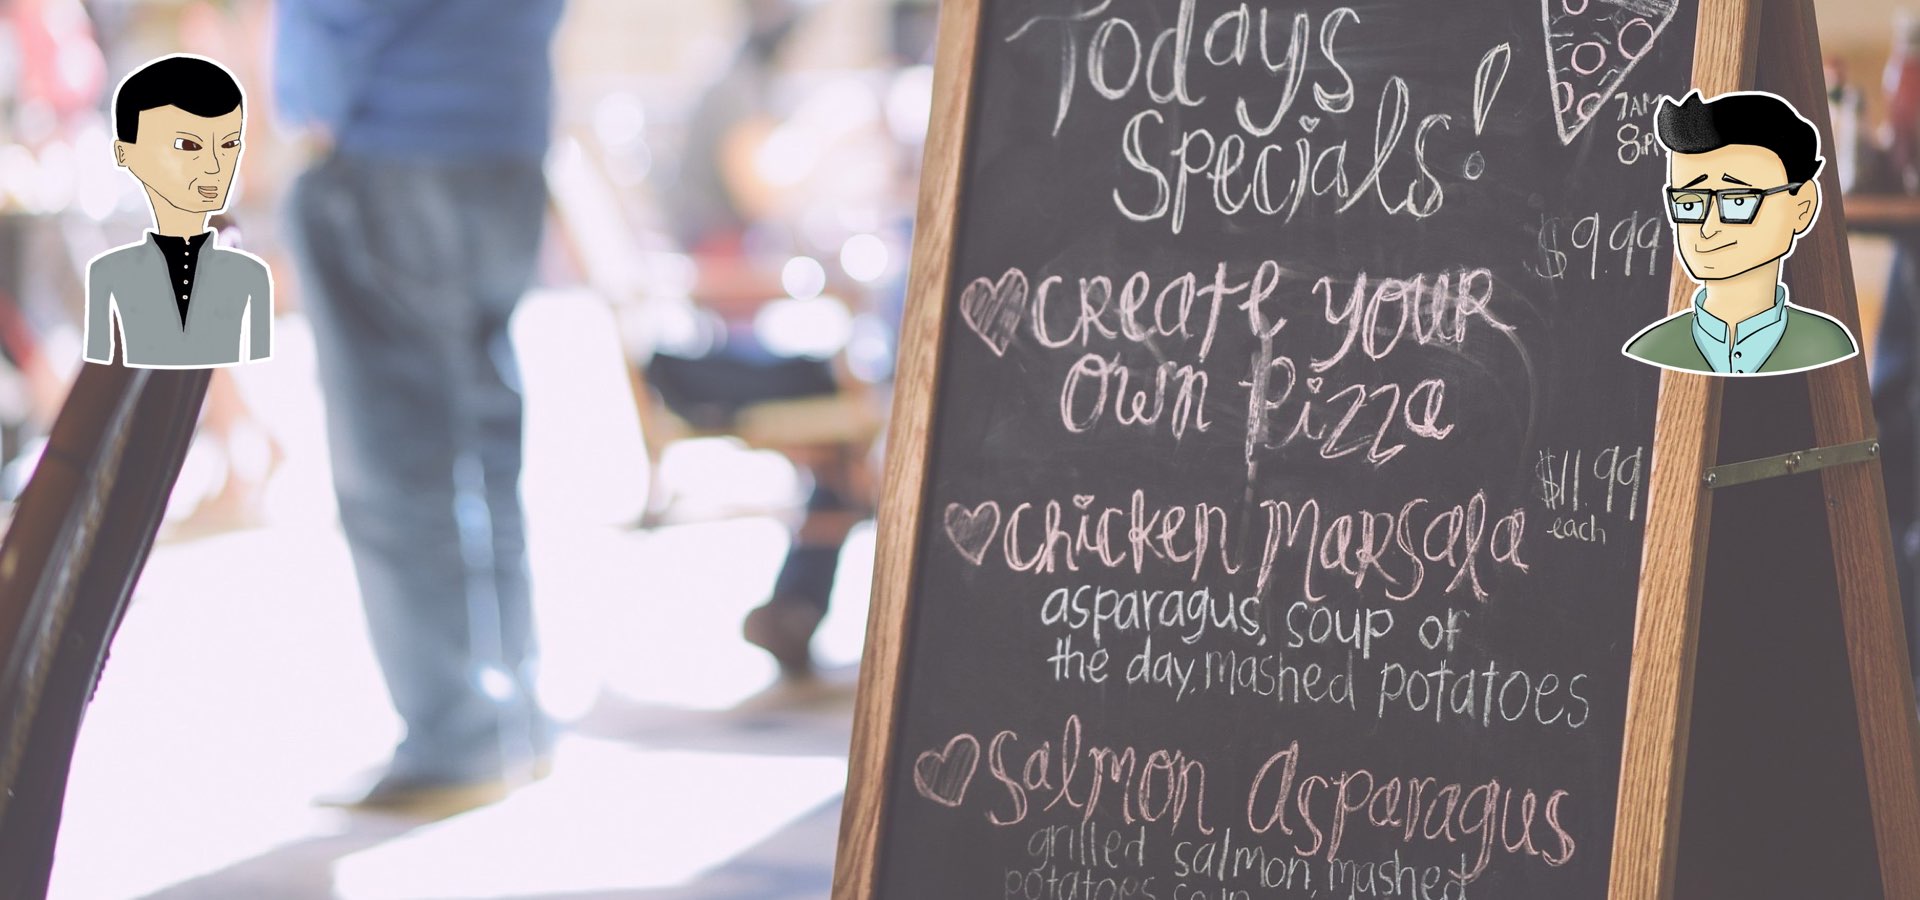 Todays
Specials!
7AM
8PM
$9.99
create your
own Pizza
$11.99
each
chicken Marsala
asparagus, soup of
the day, mashed potatoes
Salmon Asparagus
grilled salmon, mashed
potatoes, soup